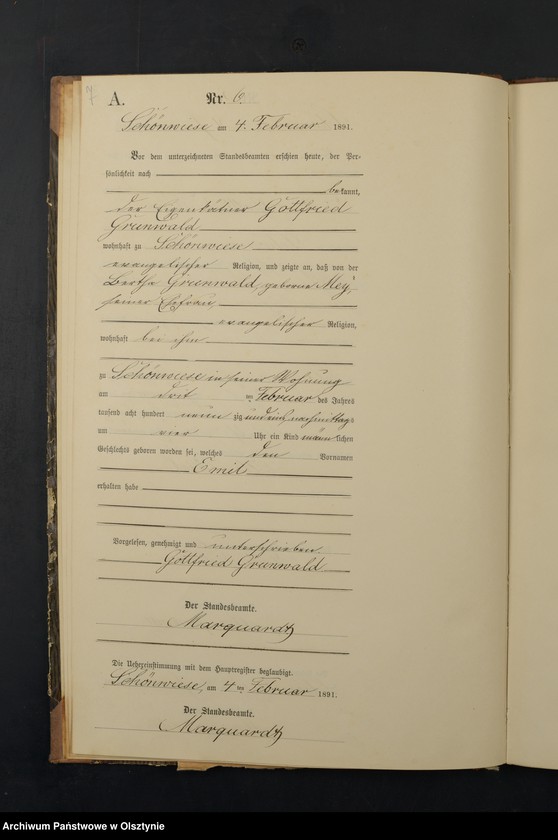 A. Nr. 6.
Schönwiese am 4. Februar 1891.
Vor dem unterzeichneten Standesbeamten erschien heute, der Per-
sönlichkeit nach
bekannt,
der Eigenkätner Gottfried
Grunwald
wohnhaft zu Schönwiese
evangelischer Religion, und zeigte an, daß von der
Bertha Grunwald, geborne Mey,
seiner Ehefrau,
evangelischer Religion,
wohnhaft bei ihm
zu Schönwiese in seiner Wohnung
am drei ten Februar des Jahres
tausend acht hundert neun zig und eins nachmittags
um vier Uhr ein Kind männlichen
Geschlechts geboren worden sei, welches den Vornamen
Emil
erhalten habe
Vorgelesen, genehmigt und unterschrieben
Gottfried Grunwald
Der Standesbeamte.
Marquardt
Die Uebereinstimmung mit dem Hauptregister beglaubigt.
Schönwiese, am 4ten Februar 1891.
Der Standesbeamte.
Marquardt
Archiwum Państwowe w Olsztynie